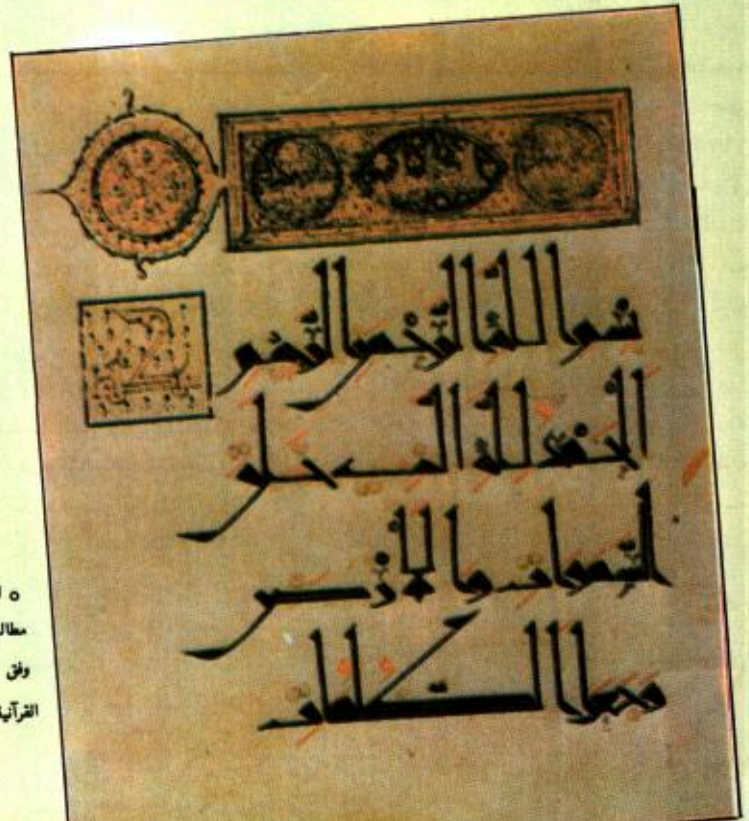 بسم الله الرحمن الرحيم
الحمد لله الذي خلق
السموات والأرض
وجعل الظلمات
مطال
وفق
القرآنية